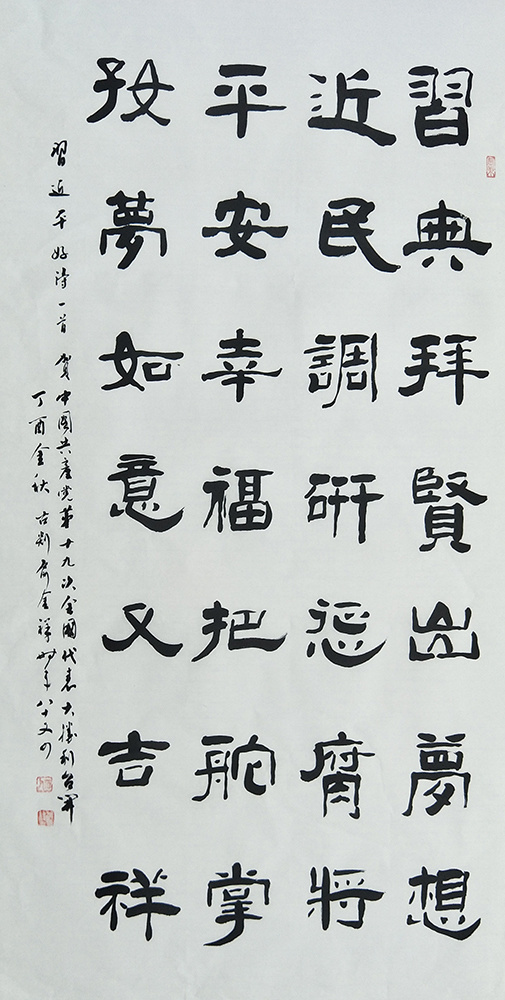 習典拜賢出夢想
近民調研惩腐將
平安幸福把舵掌
好夢如意又吉祥
習近平好詩一首 賀中國共產党第十九次全國代表大勝利召開
丁酉金秋 古剡俞金祥時年八十又四